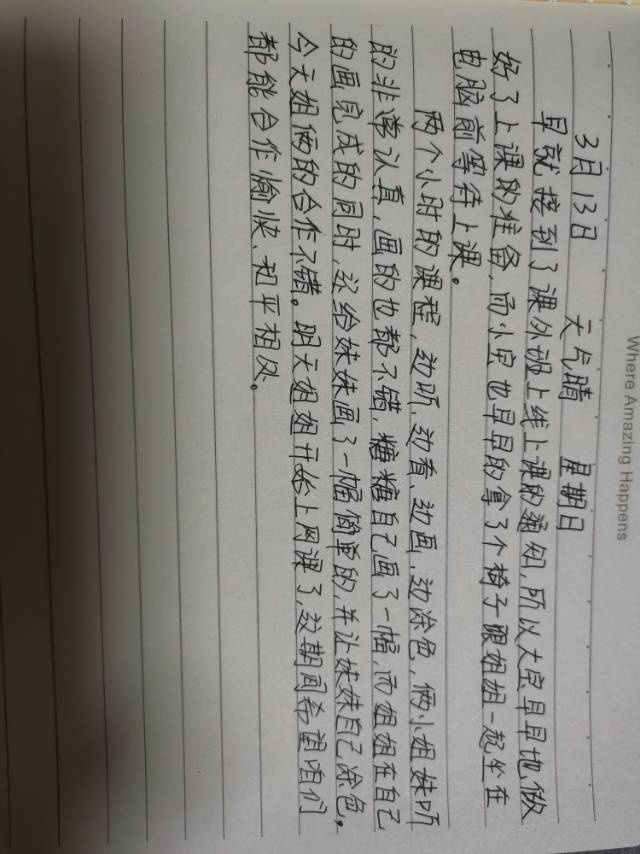 Where Amazing Happens
3月13日 天气晴 星期日
早就接到了课外班上线上课的通知,所以大宝早早地做
好了上课的准备,而小宝也早早的拿了个椅子跟姐姐一起坐在
电脑前等待上课。
两个小时的课程,边听、边看、边画、边涂色,俩小姐妹听
的非常认真,画的也都不错,糖糖自己画了一幅,而姐姐在自己
的画完成的同时,还给妹妹画了一幅简单的,并让妹妹自己涂色,
今天姐俩的合作不错。明天姐姐开始上网课了,这期间希望咱们
都能合作愉快、和平相处。